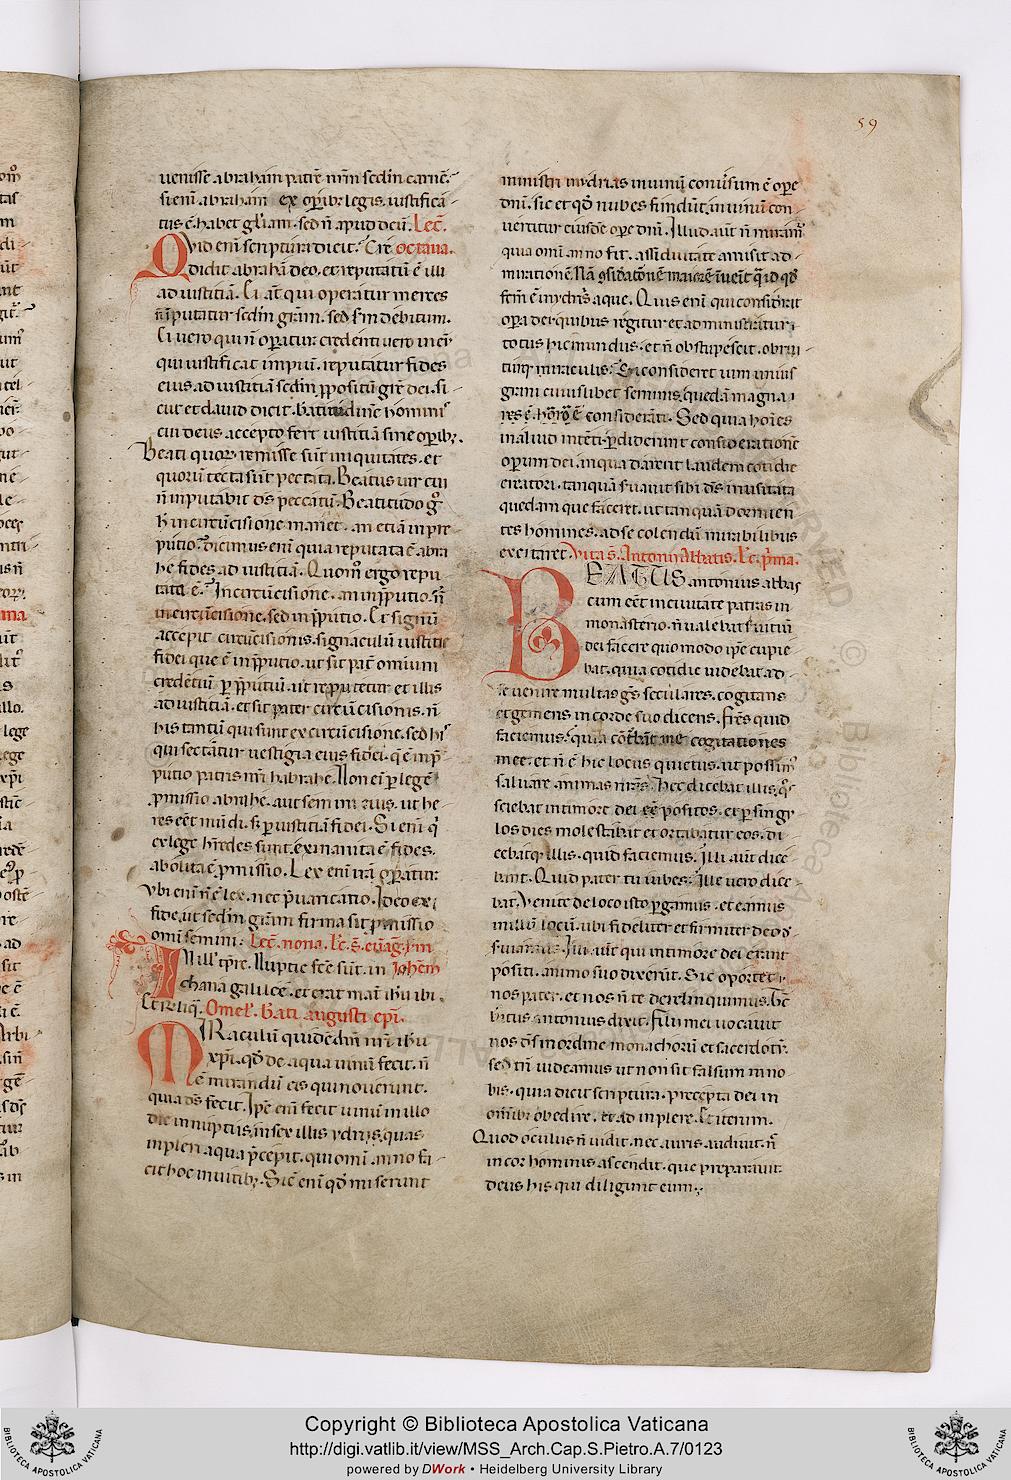 59
uenisse abraham patrē nr̄m scd̄m carnē.
si eni abraham ex oꝑibꝫ legis iustificā
tus ē. habet gl̄iam. sed n̄ apud deū. Lec̄.
Quid eni scriptura dicit. Cre octaua.
didit abrahā deo. et reputatū ē illi
ad iustitiā. Ei aūt qui operatur merces
n̄ īputatur scd̄m grām. sed scd̄m debitum.
Ei uero qui n̄ oꝑatur credenti uero in eū
qui iustificat impiū. reputatur fides
eius. ad iustitiā scd̄m ꝓpositū grē dei. si
cut et dauid dicit. batitudinē hominis
cui deus accepto fert iustitiā sine oꝑibꝫ.
Beati quoꝝ remisse sūt iniquitates. et
quorū tecta sūt peccata. Beatus uir cui
n̄ imputabit dn̄s peccatū. Beatitudo gͦ
h̄ in circūcisione manet. an etiā in pre
putio. Dicimus enī quia reputata ē abra
he fides ad iustitiā. Quom̄ ergo repu
tata ē. In circūcisione. an in p̄putio. n̄
in circūcisione. sed in p̄putio. Et signū
accepit circūcisionis. signaculū iustitie
fidei que ē in p̄putio. ut sit pat̄ omium
credētiū ꝑ p̄putiū. ut reputetur et illis
ad iustitiā. et sit pater circūcisionis. n̄
his tantū qui sunt ex circūcisione. sed his
qui sectātur uestigia eius fidei. q̄ ē in p̄
putio patris nr̄i habrahe. Non enī ꝑ legē
ꝓmissio abrahe. aut semini eius. ut he
res eēt mūdi. sꝫ ꝑ iustitiā fidei. Si enī q̄
ex lege h̄redes sunt. exinanita ē fides.
abolita ē ꝓmissio. Lex enī irā oꝑatur.
Vbi enī n̄ ē lex. nec p̄uaricatio. Ideo ex
fide. ut scd̄m grām firma sit ꝓmissio
omī semini. Lec̄. nona. Lc̄. s̄. euāg. s̄m
In illꝰ tp̄re. Nuptie fc̄e sūt. in Johem
chana galilee. et erat mat̄ ih̄u ibi.
Et reliq̄. Omel̄. bati augusti epī.
MIRaculū quidē dn̄i nr̄i ih̄u
xp̄i. qd̄ de aqua uinū fecit. n̄
ē mirandū eis qui nouerunt.
quia dn̄s fecit. Ip̄e enī fecit uinū in illo
die in nuptiis. in sex illis ydriis. quas
inpleri aqua p̄cepit. qui omī anno fa
cit hoc in uitibꝫ. Sic enī qd̄ miserunt
ministri in ydrias in uinū conuersum ē oꝑe
dn̄i. sic et qd̄ nubes fundūt. in uinū con
uertitur eiusdē oꝑe dn̄i. Illud aut̄ n̄ miram̄
quia omī anno fit. assiduitate amisit ad
mirationē.
fc̄m ē in ydriis aque. Quis enī qui considerat
oꝑa dei quibus regitur et administratur
totus hic mundus. et n̄ obstupescit. obrui
turq̄ miraculis. Si consideret uim unius
grani cuiuslibet seminis. quedā magna
res ē. horror ē considerāti. Sed quia hoīes
in aliud intēti. ꝑdiderunt considerationē
oꝑum dei. in qua darent laudem cotidie
creatori. tanquā s̄uauit sibi dn̄s inusitata
quedam que faceret. ut tanquā dormien
tes homines. ad se colendū mirabilibus
excitaret. Vita s̄. Antonii Abbatis. Lc̄. p̄ma.
BEATUS antonius abbas
cum eēt in ciuitate patras in
monasterio. n̄ ualebat s̄uitiū
dei facere quo modo ip̄e cupie
bat. quia cotidie uidebat ad
se uenire multas gēs seculares. cogitans
et gemens in corde suo dicens. Fr̄es quid
faciemus. quia cōt̄bāt me cogitationes
mee. et n̄ ē hic locus quietus. ut possim̄
saluare animas nr̄as. Hec dicebat illis. qͦs
sciebat in timore dei eē positos. et ꝑ singu
los dies molestabāt et ortabatur eos. di
cebatq̄ illis. quid faciemus. Illi aūt dice
bant. Quid pater tu iubes. Ille uero dice
bat. Venite de loco isto ꝑgamus. et eamus
in illū locū. ubi fideliter et firmiter deo d
s̄uiamus. Illi aūt qui in timore dei erant
positi. animo suo dixerūt. Sic oportet
nos pater. et nos n̄ te derelinquimus. Bē
Antonius dixit. Filii mei uocauit
nos dn̄s in ordine monachorū et sacerdotū.
sed tn̄ uideamus ut non sit falsum in no
bis. quia dicit scriptura. precepta dei in
omībꝫ obedire. et adinplere. Et iterum.
Quod oculus n̄ uidit. nec auris audiuit. n̄
in cor hominis ascendit. que preparauit
deus his qui diligunt eum.
Copyright © Biblioteca Apostolica Vaticana
http://digi.vatlib.it/view/MSS_Arch.Cap.S.Pietro.A.7/0123
powered by DWork • Heidelberg University Library
BIBLIOTECA APOSTOLICA VATICANA
BIBLIOTECA APOSTOLICA VATICANA